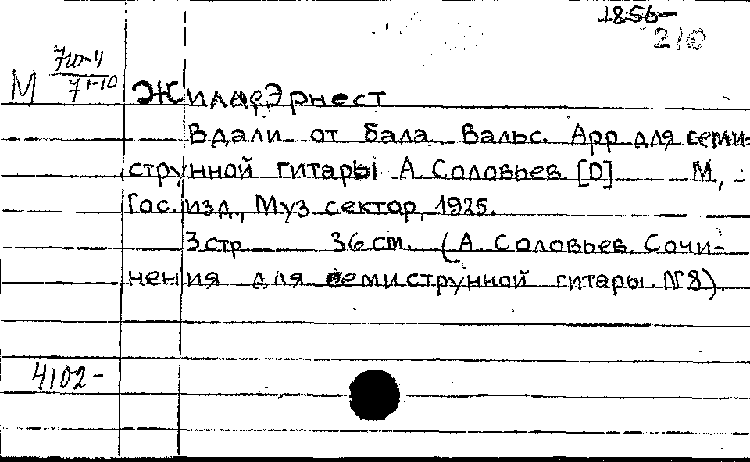 1856-
210
М 7ит-4
7т-10
Жилле, Эрнест
Вдали от бала. Вальс. Арр. для семи-
струнной гитары А. Соловьев [О] М.,
Гос. изд., Муз. сектор, 1925.
3 стр. 36 см. (А. Соловьев. Сочи-
нения для семиструнной гитары. № 8)
4102-